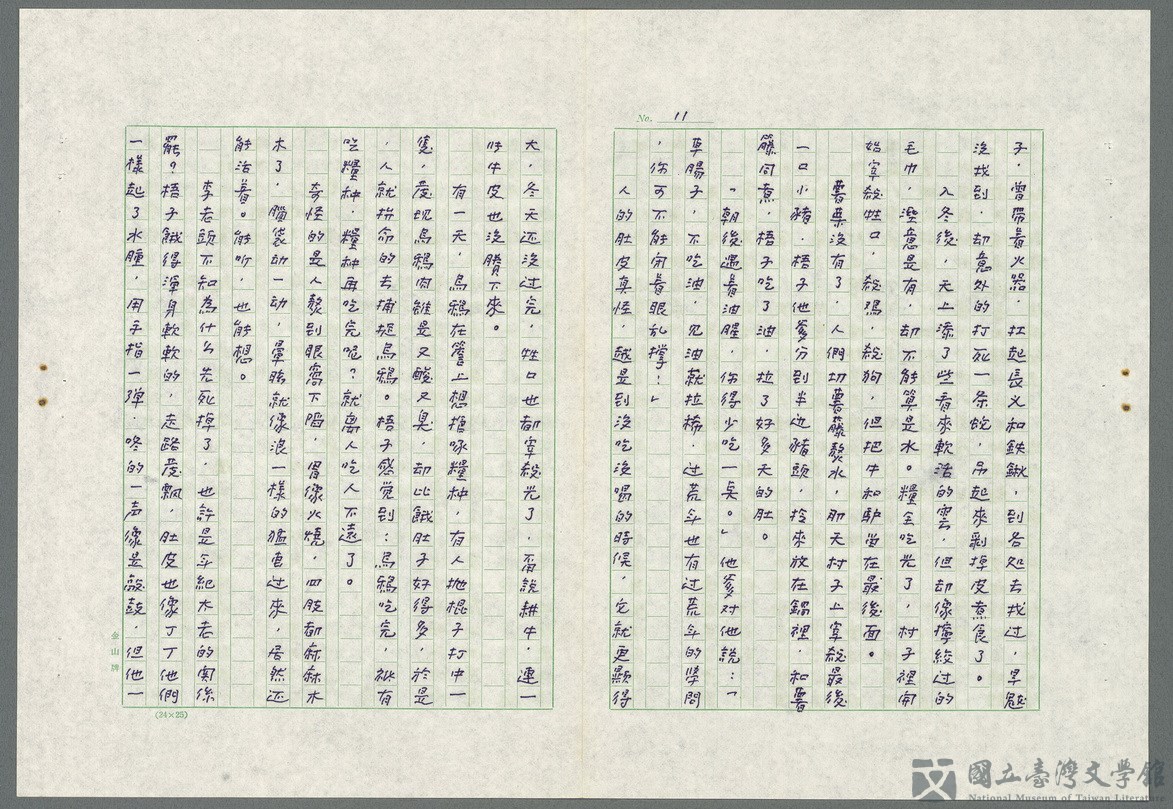 No. 11
子，曾帶着火器，扛起長义和鉄鍬，到各処去找过，旱魃
沒找到，却意外的打死一条蛇，吊起來剝掉皮煮食了。
入冬後，天上添了些看來軟活的雲，但却像擰絞过的
毛巾，溼意是有，却不能算是水。糧全吃光了，村子裡開
始宰殺牲口，殺鷄，殺狗，但把牛和驴留在最後面。
薯葉沒有了，人們切薯藤熬水，那天村子上宰殺最後
一口小豬，梧子他爹分到半边豬頭，拎來放在鍋裡，和薯
籐同煮，梧子吃了油，拉了好多天的肚。
「朝後遇着油腥，你得少吃一矣。」他爹对他說：「
草腸子，不吃油，見油就拉稀，过荒年也有过荒年的學問
，你可不能閉着眼乱撑！」
人的肚皮真怪，越是到沒吃沒喝的時候，它就更顯得
大，冬天还沒过完，牲口也都宰殺光了，甭說耕牛，連一
吽牛皮也沒賸下來。
有一天，烏鴉在簷上想搶啄糧种，有人抛棍子打中一
隻，發現烏鴉肉雖是又酸又臭，却比餓肚子好得多，於是
，人就拚命的去捕捉烏鴉。梧子感觉到：烏鴉吃完，祇有
吃糧种，糧种再吃完呢？就离人吃人不遠了。
奇怪的是人熬到眼窩下陷，胃像火燒，四肢都麻麻木
木了，腦袋动一动，暈眩就像浪一樣的猛直过來，居然还
能活着。能听，也能想。
李老頭不知為什么先死掉了，也許是年紀太老的関係
罷？梧子餓得渾身軟軟的，走路發飄，肚皮也像丁丁他們
一樣起了水腫，用手指一弹，咚的一声像是敲鼓，但他一
金山牌
(24×25)
國立臺灣文學館
National Museum of Taiwan Literature